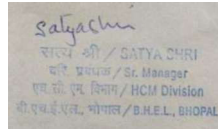 Satyashri
सत्य श्री / SATYA SHRI
वरि. प्रबंधक / Sr. Manager
एच.सी.एम. विभाग / HCM Division
बी.एच.ई.एल., भोपाल / B.H.E.L., BHOPAL